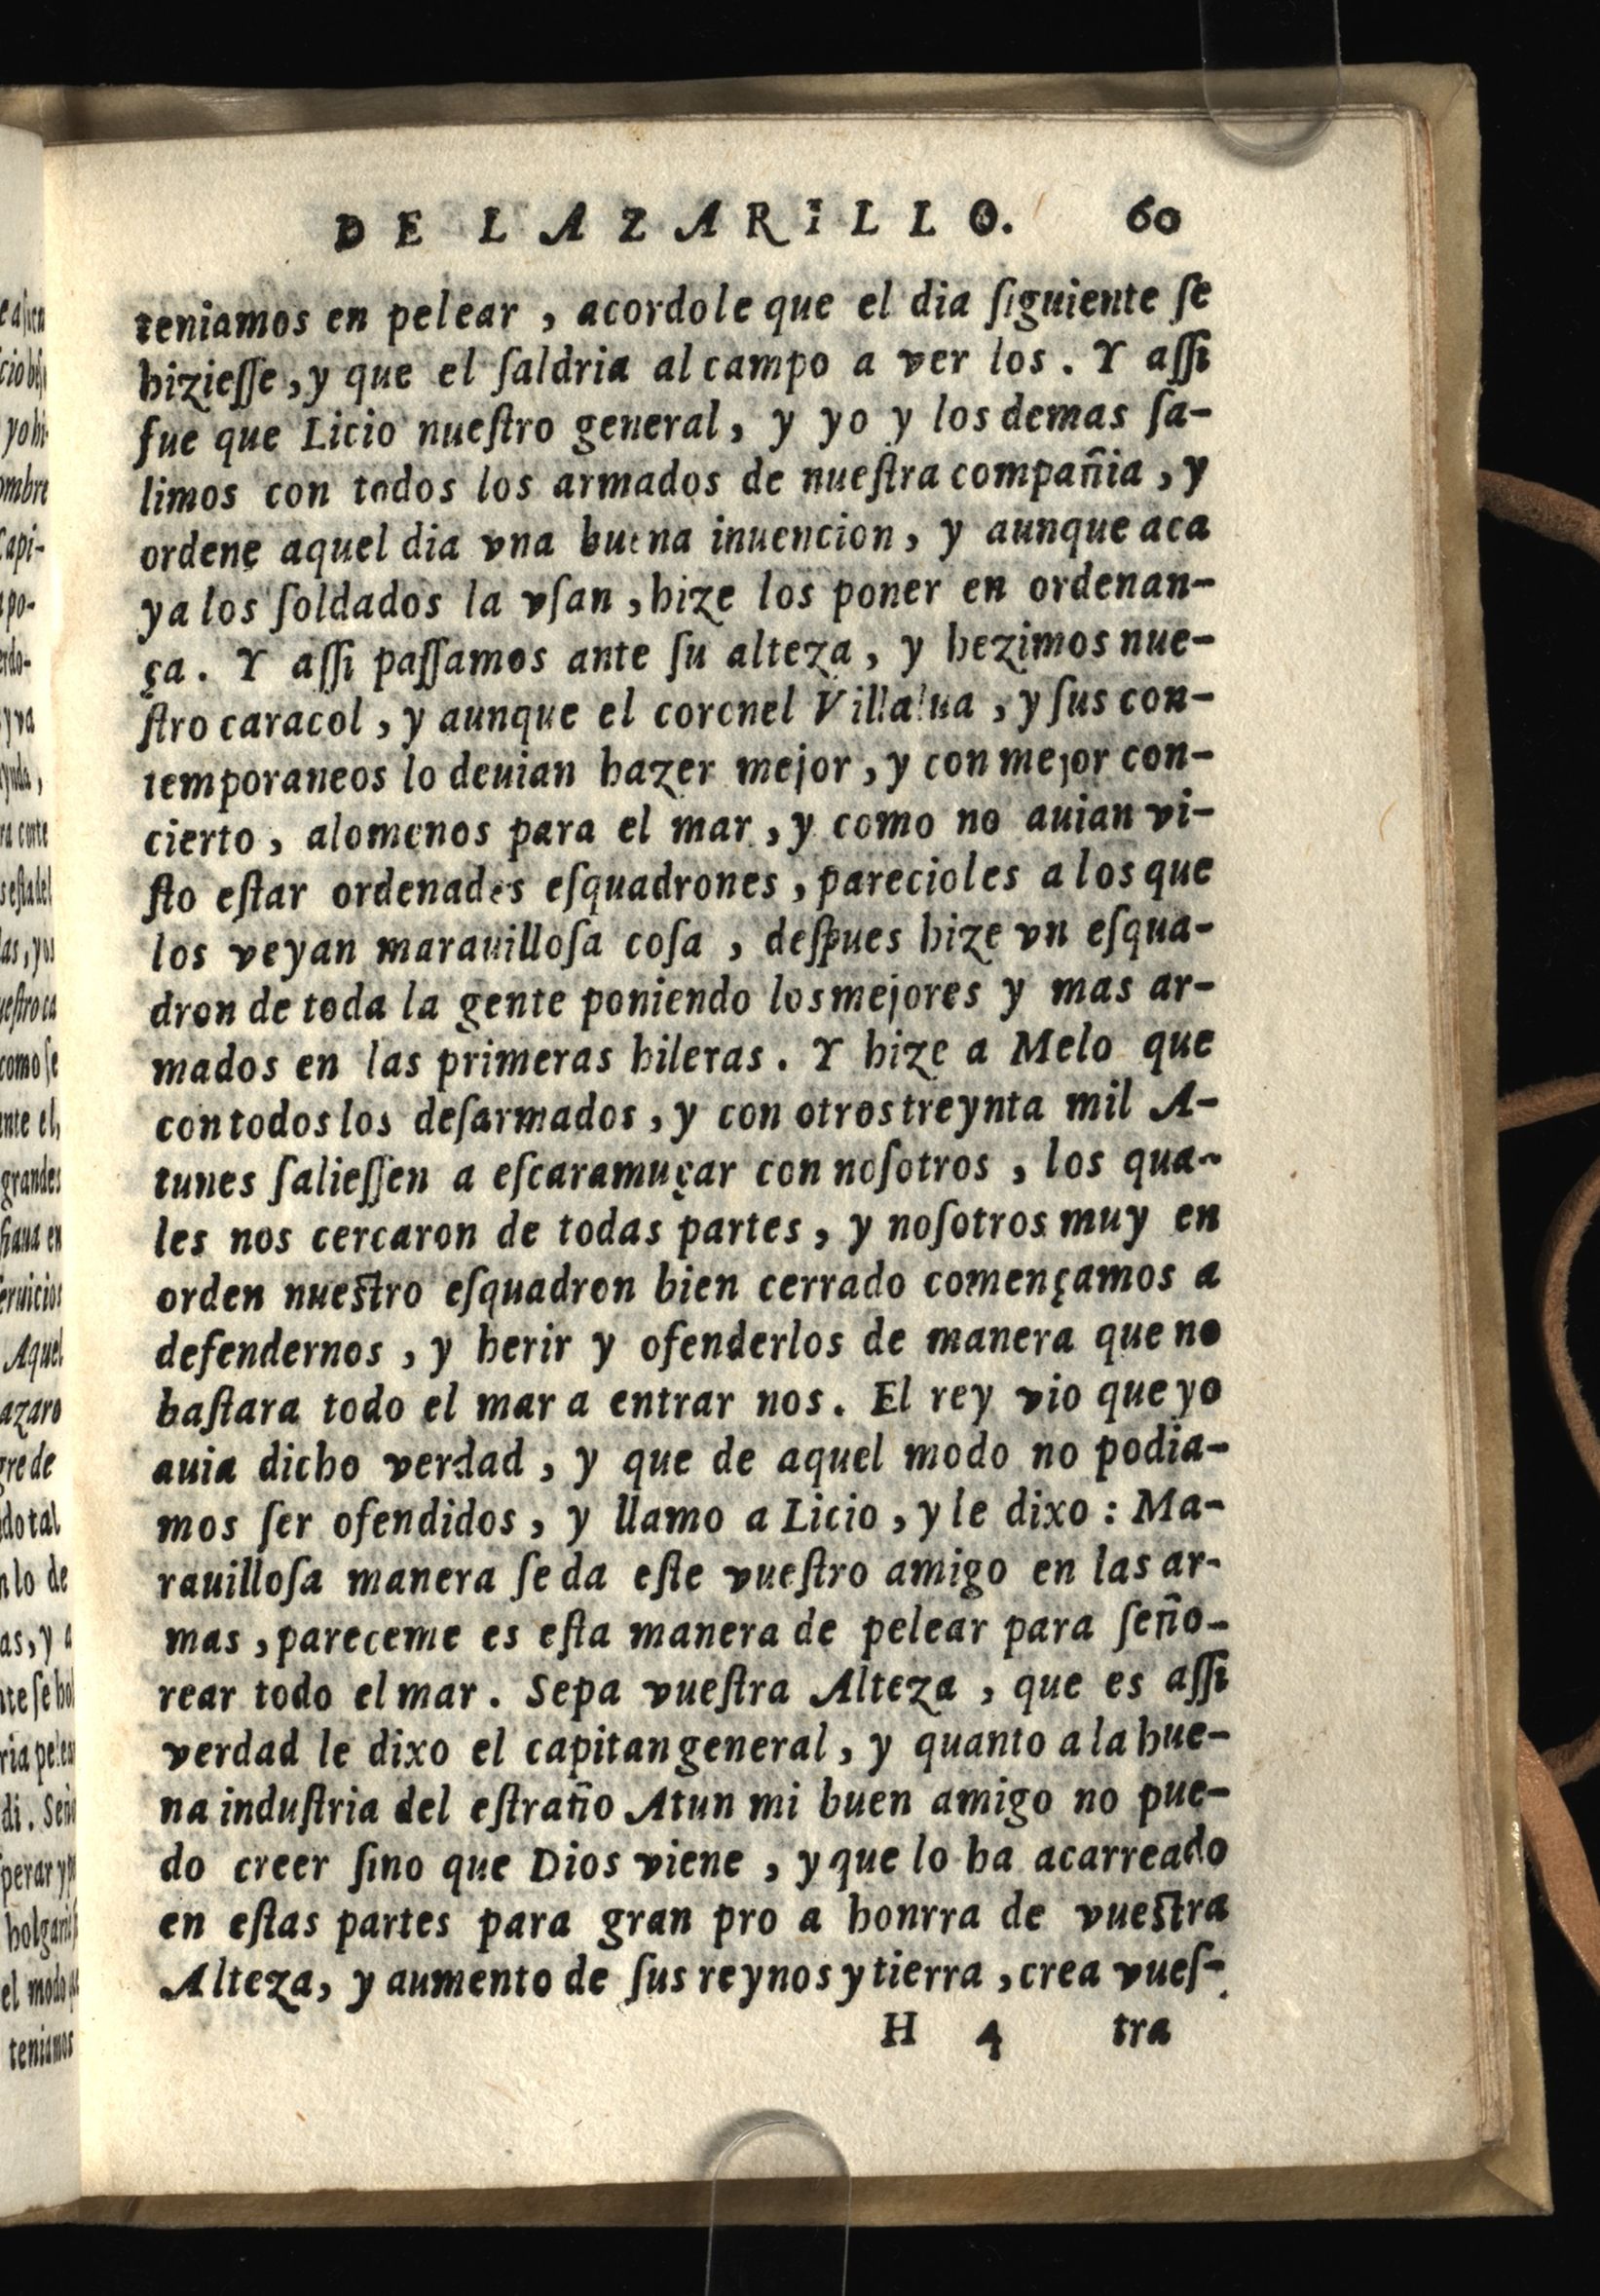 DE LAZARILLO. 60
teniamos en pelear, acordole que el dia ſiguiente ſe
hizieſſe, y que el ſaldria al campo a ver los. Y aſſi
fue que Licio nueſtro general, y yo y los demas ſa-
limos con todos los armados de nueſtra compañia, y
ordene aquel dia vna buena inuencion, y aunque aca
ya los ſoldados la vſan, hize los poner en ordenan-
ça. Y aſſi paſſamos ante ſu alteza, y hezimos nue-
ſtro caracol, y aunque el coronel Villalua, y ſus con-
temporaneos lo deuian hazer mejor, y con mejor con-
cierto, alomenos para el mar, y como no auian vi-
ſto eſtar ordenades eſquadrones, parecioles a los que
los veyan marauilloſa coſa, deſpues hize vn eſqua-
dron de toda la gente poniendo los mejores y mas ar-
mados en las primeras hileras. Y hize a Melo que
con todos los deſarmados, y con otros treynta mil A-
tunes ſalieſſen a eſcaramuçar con noſotros, los qua-
les nos cercaron de todas partes, y noſotros muy en
orden nueſtro eſquadron bien cerrado començamos a
defendernos, y herir y ofenderlos de manera que no
baſtara todo el mar a entrar nos. El rey vio que yo
auia dicho verdad, y que de aquel modo no podia-
mos ſer ofendidos, y llamo a Licio, y le dixo: Ma-
rauilloſa manera ſe da eſte vueſtro amigo en las ar-
mas, pareceme es eſta manera de pelear para ſeño-
rear todo el mar. Sepa vueſtra Alteza, que es aſſi
verdad le dixo el capitan general, y quanto a la bue-
na induſtria del eſtraño Atun mi buen amigo no pue-
do creer ſino que Dios viene, y que lo ha acarreado
en eſtas partes para gran pro a honrra de vueſtra
Alteza, y aumento de ſus reynos y tierra, crea vueſ-
H 4 tra